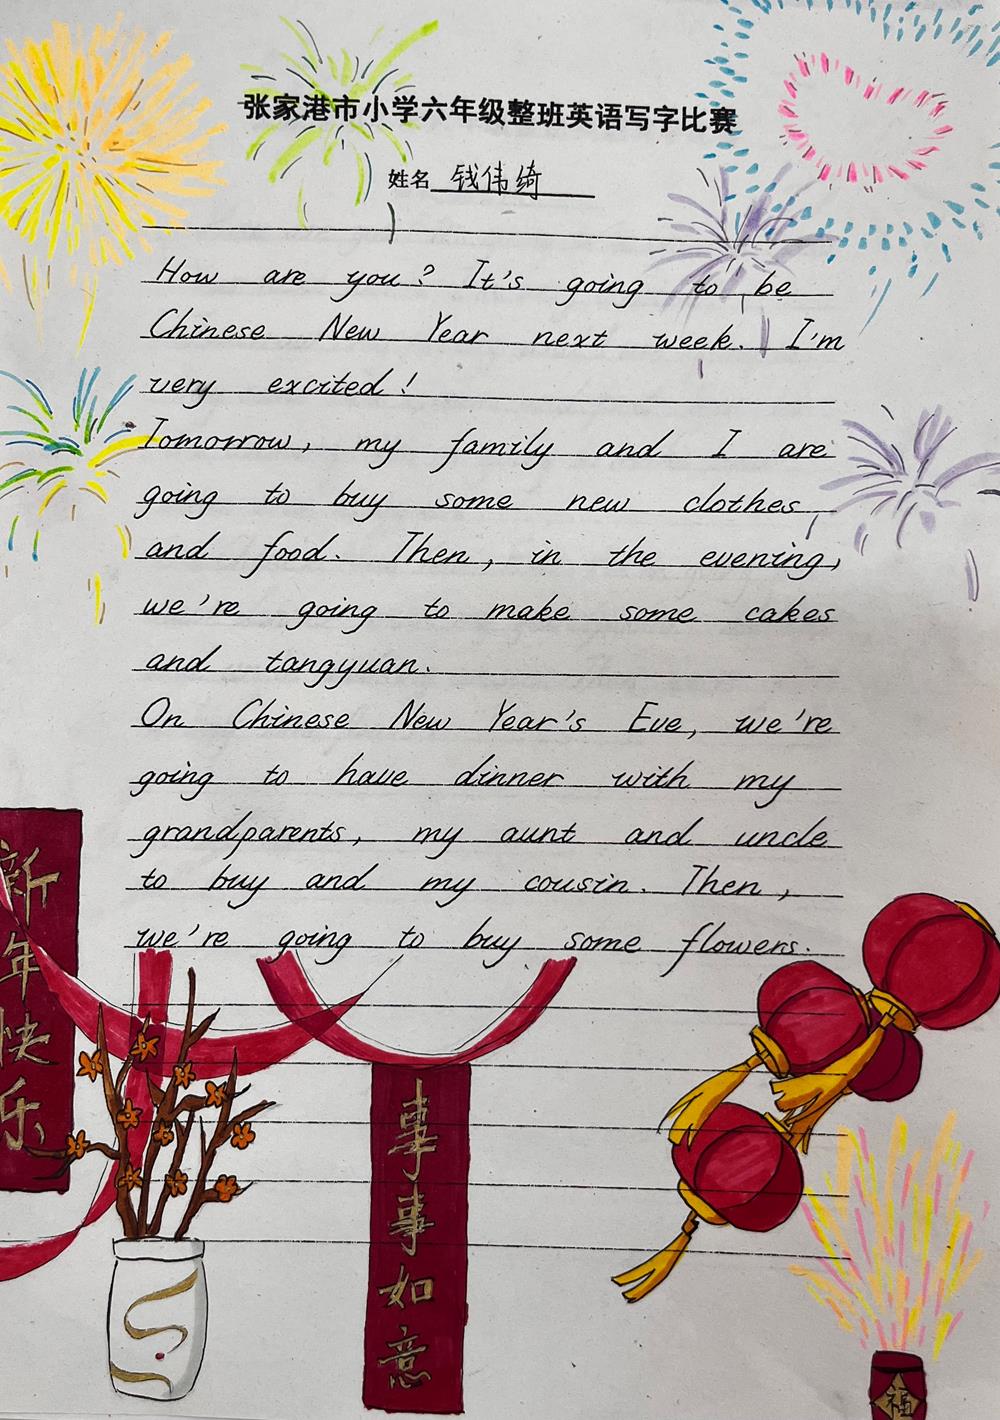 张家港市小学六年级整班英语写字比赛
姓名 钱伟绮
How are you? It's going to be
Chinese New Year next week. I'm
very excited!
Tomorrow, my family and I are
going to buy some new clothes
and food. Then, in the evening,
we're going to make some cakes
and tangyuan.
On Chinese New Year's Eve, we're
going to have dinner with my
grandparents, my aunt and uncle
to buy and my cousin. Then,
we're going to buy some flowers.
新年快乐
事事如意
福